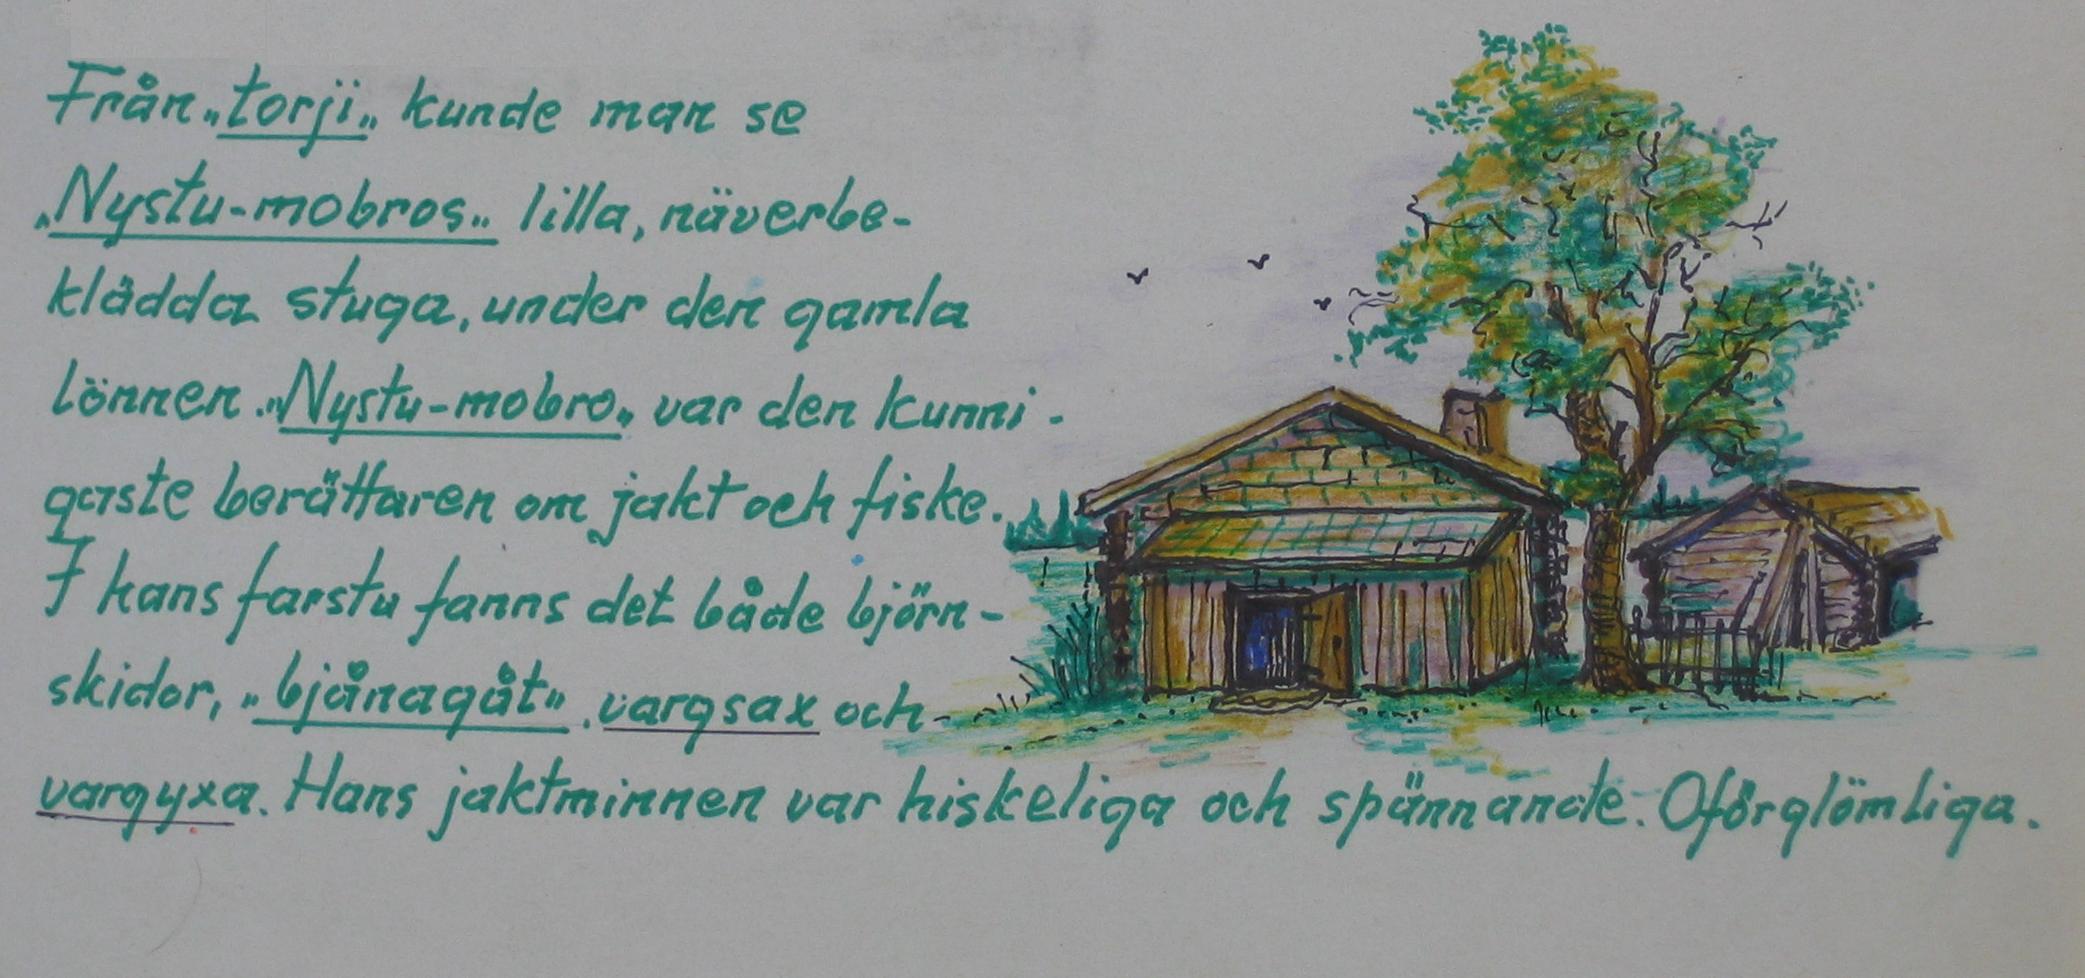 Från „torji„ kunde man se
„Nystu-mobros„ lilla, näverbe-
klädda stuga, under den gamla
lönnen. „Nystu-mobro„ var den kunni-
gaste berättaren om jakt och fiske.
I hans farstu fanns det både björn-
skidor, „bjånagåt" . vargsax och
vargyxa. Hans jaktminnen var hiskeliga och spännande. Oförglömliga.